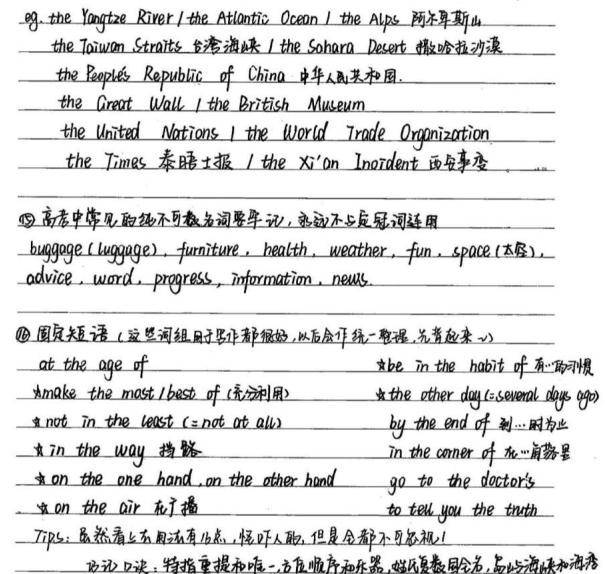 eg. the Yangtze River / the Atlantic Ocean / the Alps 阿尔卑斯山
the Taiwan Straits 台湾海峡 / the Sahara Desert 撒哈拉沙漠
the People's Republic of China 中华人民共和国.
the Great Wall / the British Museum
the United Nations / the World Trade Organization
the Times 泰晤士报 / the Xi'an Incident 西安事变
⑮ 高考中常见的纯不可数名词要牢记，永远不与定冠词连用
buggage (luggage), furniture, health, weather, fun, space (太空),
advice, word, progress, information, news.
⑯ 固定短语 (这些词组用于写作都很好，以后会作统一整理，先背起来~)
at the age of
☆make the most / best of (充分利用)
☆ not in the least (= not at all)
☆ in the way 挡路
☆ on the one hand, on the other hand
☆ on the air 在广播
☆be in the habit of 有…的习惯
☆ the other day (= several days ago)
by the end of 到…时为止
in the corner of 在…角落里
go to the doctor's
to tell you the truth
Tips: 虽然看上去用法有16点，怪吓人的，但是全都不可忽视!
巧记口诀：特指重提和唯一，方位顺序和乐器，姓氏复数国全名，